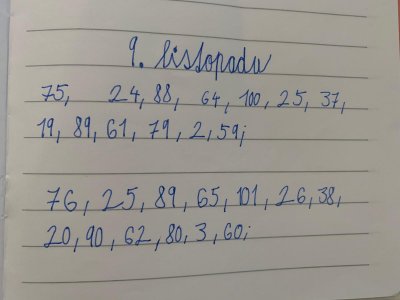 9. listopadu
75, 24, 88, 64, 100, 25, 37,
19, 89, 61, 79, 2, 59;
76, 25, 89, 65, 101, 26, 38,
20, 90, 62, 80, 3, 60;